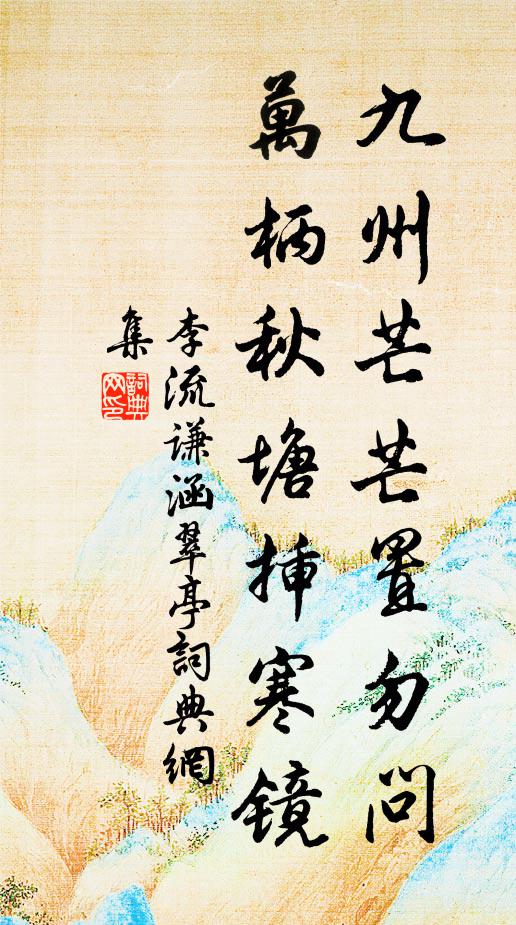 九州芒芒置勿问
萬柄秋塘挿寒镜
李流谦涵翠亭詞典網
集
詞典网印